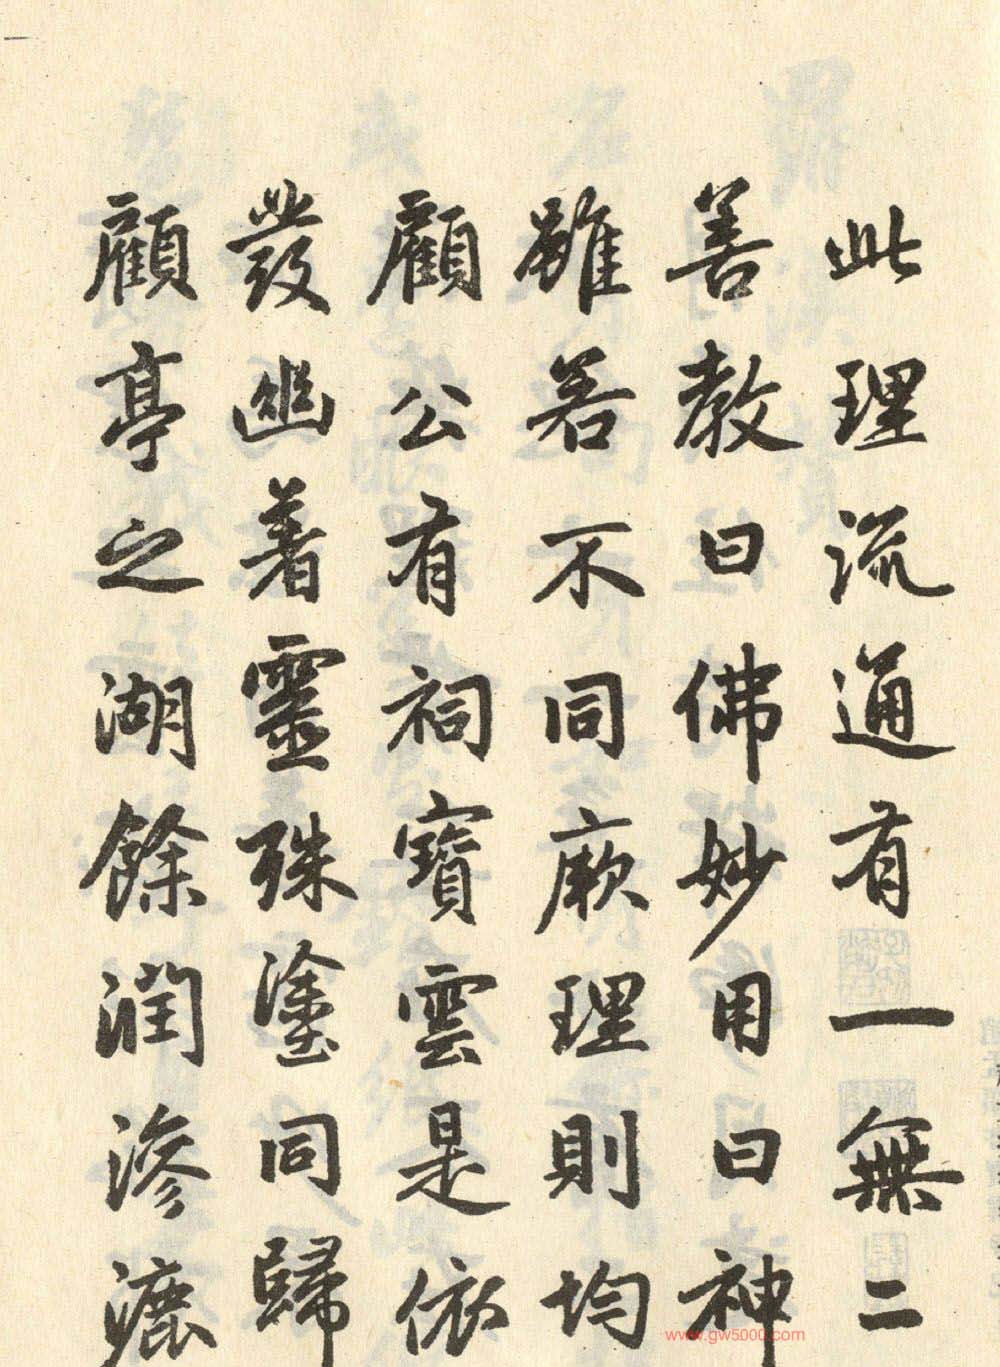 此理流通有一無二
善教曰佛妙用曰神
雖若不同厥理則均
顧公有祠寶雲是依
發幽著靈殊塗同歸
顧亭之湖餘潤滲漉
www.gw5000.com